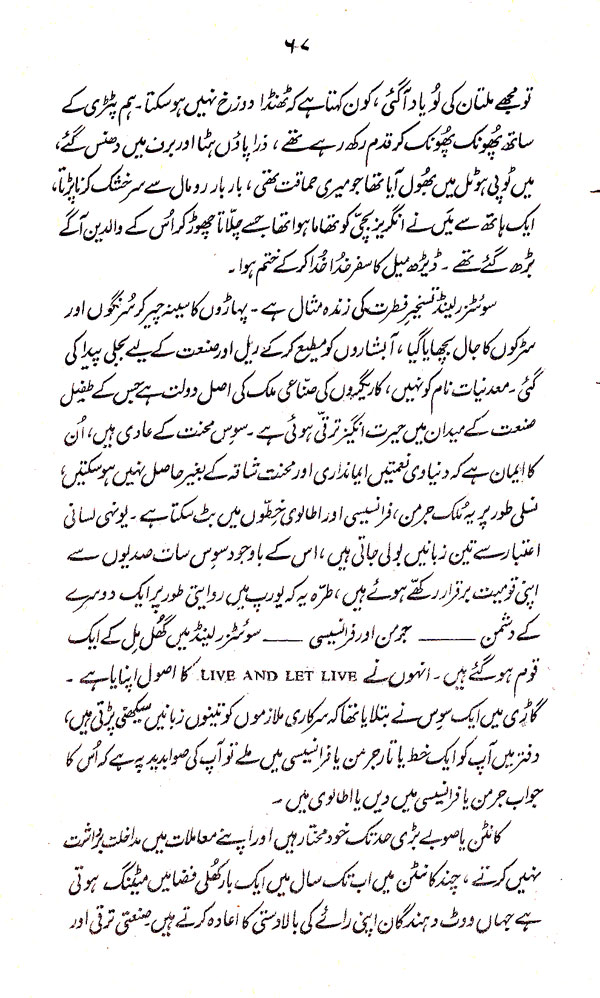 ۶۷
تو مجھے ملتان کی لُو یاد آ گئی، کون کہتا ہے کہ ٹھنڈا دوزخ نہیں ہو سکتا۔ ہم پٹڑی کے
ساتھ پُھونک پُھونک کر قدم رکھ رہے تھے، ذرا پاؤں ہٹا اور برف میں دھنس گئے،
میں ٹوپی ہوٹل میں بُھول آیا تھا جو میری حماقت تھی، بار بار رومال سے سر خشک کرنا پڑتا،
ایک ہاتھ سے میَں نے انگریز بچیّ کو تھاما ہوا تھا جسے چِلّاتا چھوڑ کر اُس کے والدین آگے
بڑھ گئے تھے۔ ڈیڑھ میل کا سفر خُدا خُدا کر کے ختم ہوا۔
سوئٹزرلینڈ تسخیرِ فطرت کی زندہ مثال ہے۔ پہاڑوں کا سینہ چیر کر سُرنگوں اور
سڑکوں کا جال بچھایا گیا، آبشاروں کو مطیع کر کے ریل اور صنعت کے لیے بجلی پیدا کی
گئی۔ معدنیات نام کو نہیں، کاریگروں کی صنّاعی ملک کی اصل دولت ہے جس کے طفیل
صنعت کے میدان میں حیرت انگیز ترقیّ ہوئی ہے۔ سوِس محنت کے عادی ہیں، اُن
کا ایمان ہے کہ دنیاوی نعمتیں ایمانداری اور محنت شاقہ کے بغیر حاصل نہیں ہو سکتیں،
نسلی طور پر یہ مُلک جرمن، فرانسیسی اور اطالوی خطّوں میں بٹ سکتا ہے۔ یونہی لسانی
اعتبار سے تین زبانیں بولی جاتی ہیں، اس کے باوجود سوِس سات صدیوں سے
اپنی قومیت برقرار رکھّے ہوئے ہیں، طرّہ یہ کہ یورپ میں روایتی طور پر ایک دوسرے
کے دشمن —— جرمن اور فرانسیسی —— سوئٹزرلینڈ میں گُھل مِل کے ایک
قوم ہو گئے ہیں۔ انہوں نے LIVE AND LET LIVE کا اصول اپنایا ہے۔
گاڑی میں ایک سوِس نے بتلایا تھا کہ سرکاری ملازموں کو تینوں زبانیں سیکھنی پڑتی ہیں،
دفتر میں آپ کو ایک خط یا تار جرمن یا فرانسیسی میں ملے تو آپ کی صوابدید پہ ہے کہ اُس کا
جواب جرمن یا فرانسیسی میں دیں یا اطالوی میں۔
کانٹن یا صوبے بڑی حد تک خود مختار ہیں اور اپنے معاملات میں مداخلت برداشت
نہیں کرتے، چند کانٹن میں اب تک سال میں ایک بار کُھلی فضا میں میٹنگ ہوتی
ہے جہاں ووٹ دہندگان اپنی رائے کی بالادستی کا اعادہ کرتے ہیں۔ صنعتی ترقی اور